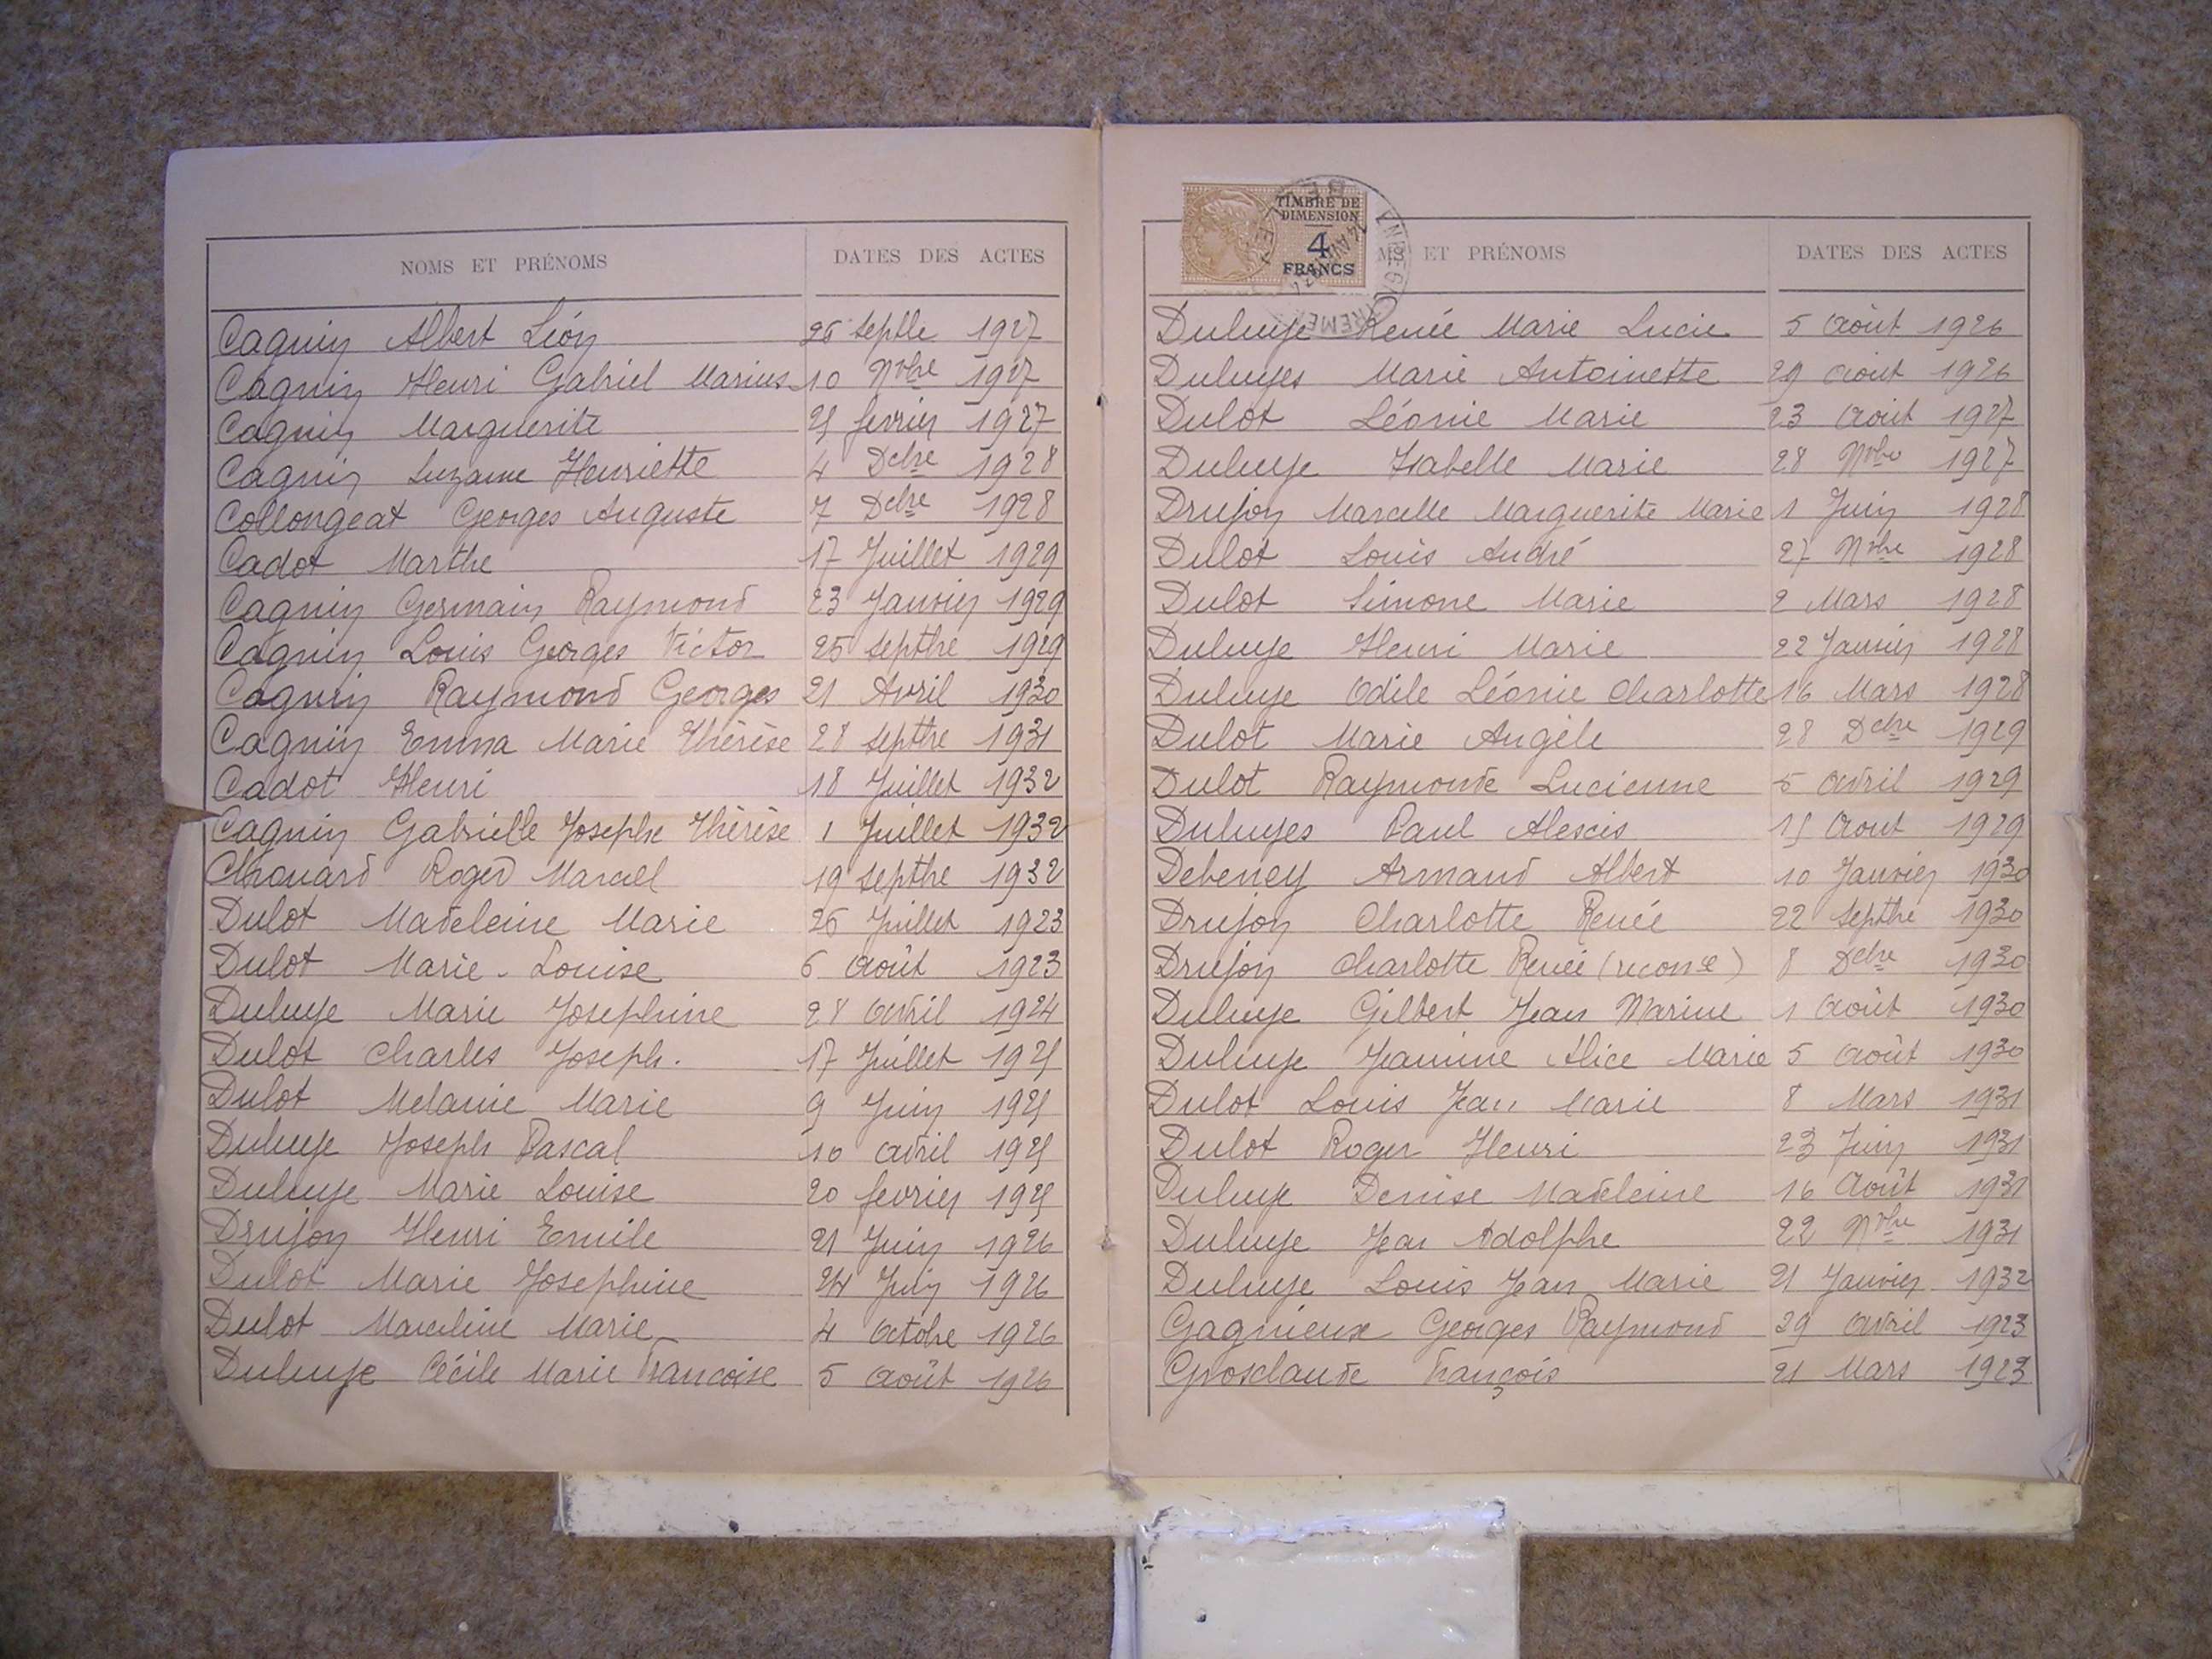 NOMS ET PRÉNOMS DATES DES ACTES
Cagnin Albert Léon 26 Septbe 1927
Cagnin Henri Gabriel Marius 10 Nvbre 1927
Cagnin Marguerite 25 fevrier 1927
Cagnin Suzanne Henriette 4 Dcbre 1928
Collongeat Georges Auguste 7 Dcbre 1928
Cadot Marthe 17 Juillet 1929
Cagnin Germain Raymond 23 Janvier 1929
Cagnin Louis Georges Victor 25 Septbre 1929
Cagnin Raymond Georges 21 Avril 1930
Cagnin Emma Marie Thérèse 28 Septbre 1931
Cadot Henri 18 Juillet 1932
Cagnin Gabrielle Josephe Thérèse 1 Juillet 1932
Chouard Roger Marcel 19 Septbre 1932
Dulot Madeleine Marie 26 Juillet 1923
Dulot Marie-Louise 6 Août 1923
Duluye Marie Josephine 28 Avril 1924
Dulot Charles Joseph. 17 Juillet 1925
Dulot Melanie Marie 9 Juin 1925
Duluye Joseph Pascal 10 Avril 1925
Duluye Marie Louise 20 fevrier 1925
Drujon Henri Emile 21 Juin 1926
Dulot Marie Josephine 24 Juin 1926
Dulot Marceline Marie 4 Octobre 1926
Duluye Cécile Marie Francoise 5 Août 1926
TIMBRE DE
DIMENSION
4
FRANCS
MS ET PRÉNOMS DATES DES ACTES
Duluye Renée Marie Lucie 5 Août 1926
Duluyes Marie Antoinette 29 Aout 1926
Dulot Léonie Marie 23 Aout 1927
Duluye Isabelle Marie 28 Nvbre 1927
Drujon Marcelle Marguerite Marie 1 Juin 1928
Dulot Louis André 27 Nvbre 1928
Dulot Simone Marie 2 Mars 1928
Duluye Henri Marie 22 Janvier 1928
Duluye Odile Léonie Charlotte 16 Mars 1928
Dulot Marie Angèle 28 Dcbre 1929
Dulot Raymonde Lucienne 5 Avril 1929
Duluyes Paul Alexis 15 Aout 1929
Debeney Armand Albert 10 Janvier 1930
Drujon Charlotte Renée 22 Septbre 1930
Drujon Charlotte Renée (reconce) 8 Dcbre 1930
Duluye Gilbert Jean Marine 1 Août 1930
Duluye Jeannine Alice Marie 5 Août 1930
Dulot Louis Jean Marie 8 Mars 1931
Dulot Roger Henri 23 Juin 1931
Duluye Denise Madeleine 16 Août 1931
Duluye Jean Adolphe 22 Nvbre 1931
Duluye Louis Jean Marie 21 Janvier 1932
Gagnieux Georges Raymond 29 Avril 1923
Grosclaude François 21 Mars 1923